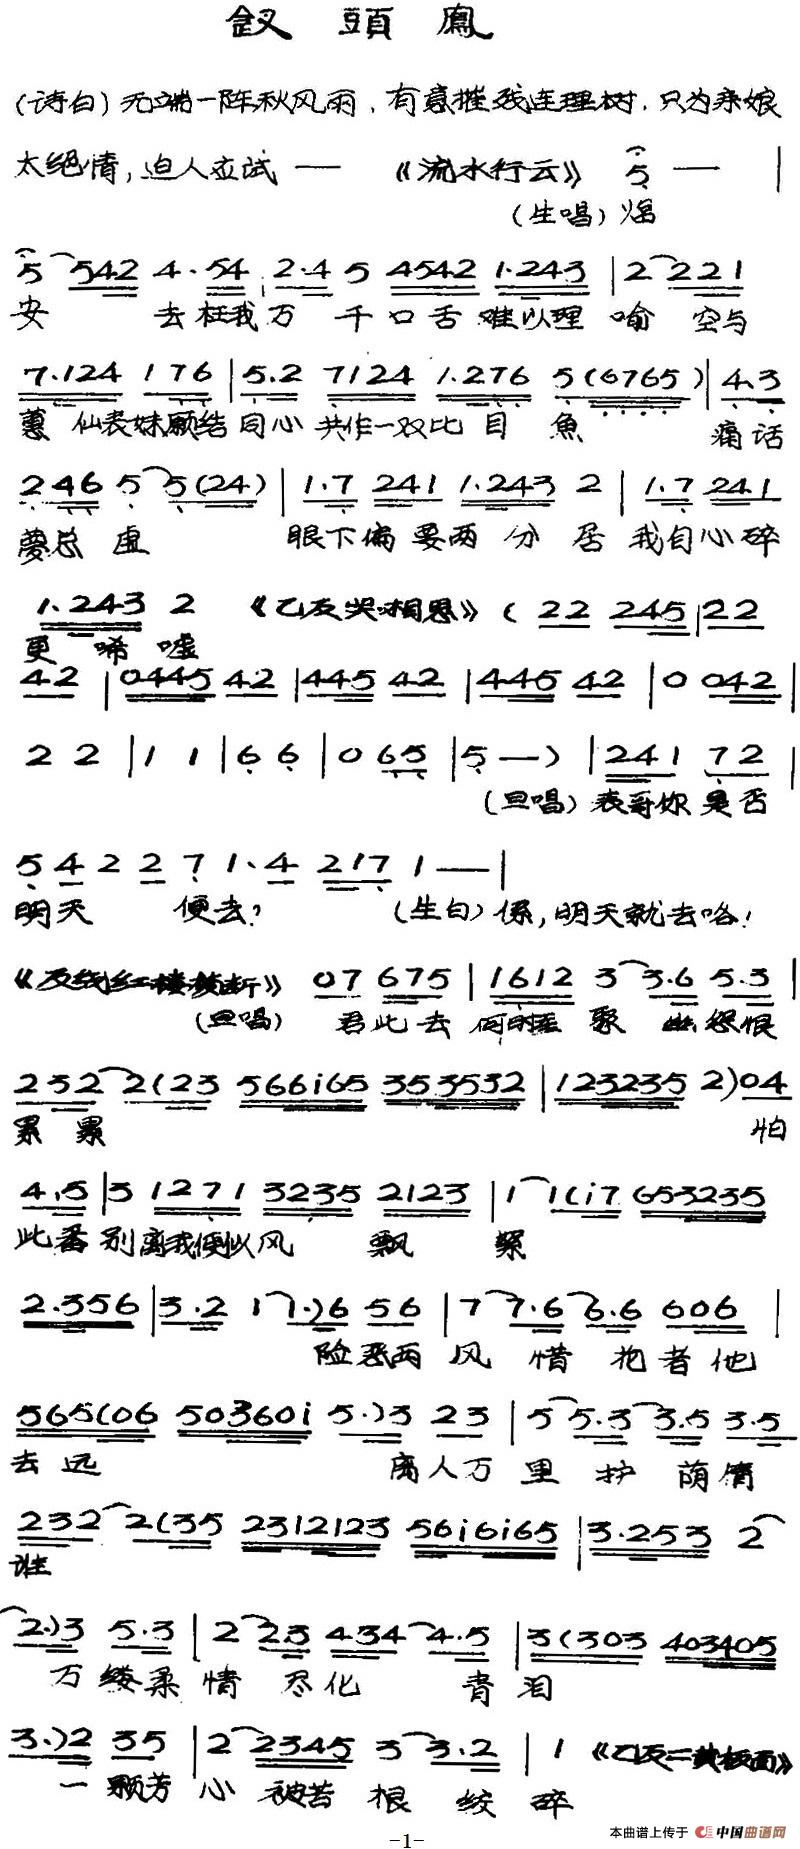 釵頭鳳
(诗白)无端一阵秋风雨,有意摧残连理树,只为亲娘
太绝情,迫人应试——《流水行云》5 — |
(生唱)焔
5 542 4·54 2·4 5 4542 1·243 | 2 221
安 去枉我万 千口舌难以理喻 空与
7·124 176 | 5·2 7124 1·276 5(6765) | 4·3
蕙仙表妹愿结同心共作一双比目魚 痛话
246 5 5(24) | 1·7 241 1·243 2 | 1·7 241
夢总虚 眼下偏要两分居 我自心碎
1·243 2 《乙反哭相思》( 22 245 | 22
更唏嘘
42 | 0445 42 | 445 42 | 445 42 | 0 042 |
2 2 | 1 1 | 6 6 | 0 65 | 5 —) | 241 72 |
(旦唱)表哥你是否
5 4 2 2 7 1·4 217 1 — |
明天 便去? (生白)係,明天就去咯!
《反线红楼梦断》 07 675 | 1612 3 3·6 5·3 |
(旦唱) 君此去何时 聚 怨恨
232 2(23 566i65 353532 | 123235 2)04
累累 怕
4·5 | 3 1271 3235 2123 | 1 1(i7 653235
此番别离我便似风飘絮
2·356 | 3·2 1 1·)6 56 | 7 7·6 6·6 606 |
险恶两风惜抱者他
565(06 50360i 5·)3 23 | 5 5·3 3·5 3·5
去远 离人万里护荫倩
232 2(35 2312123 56i6i65 | 3·253 2
谁
2·)3 5·3 | 2 2·3 434 4·5 | 3(303 403405
万缕柔情尽化 青泪
3·)2 35 | 2 2345 3 3·2 | 1 《乙反二黄板面》
一颗芳心被苦根绞碎
本曲谱上传于 中国曲谱网
-1-